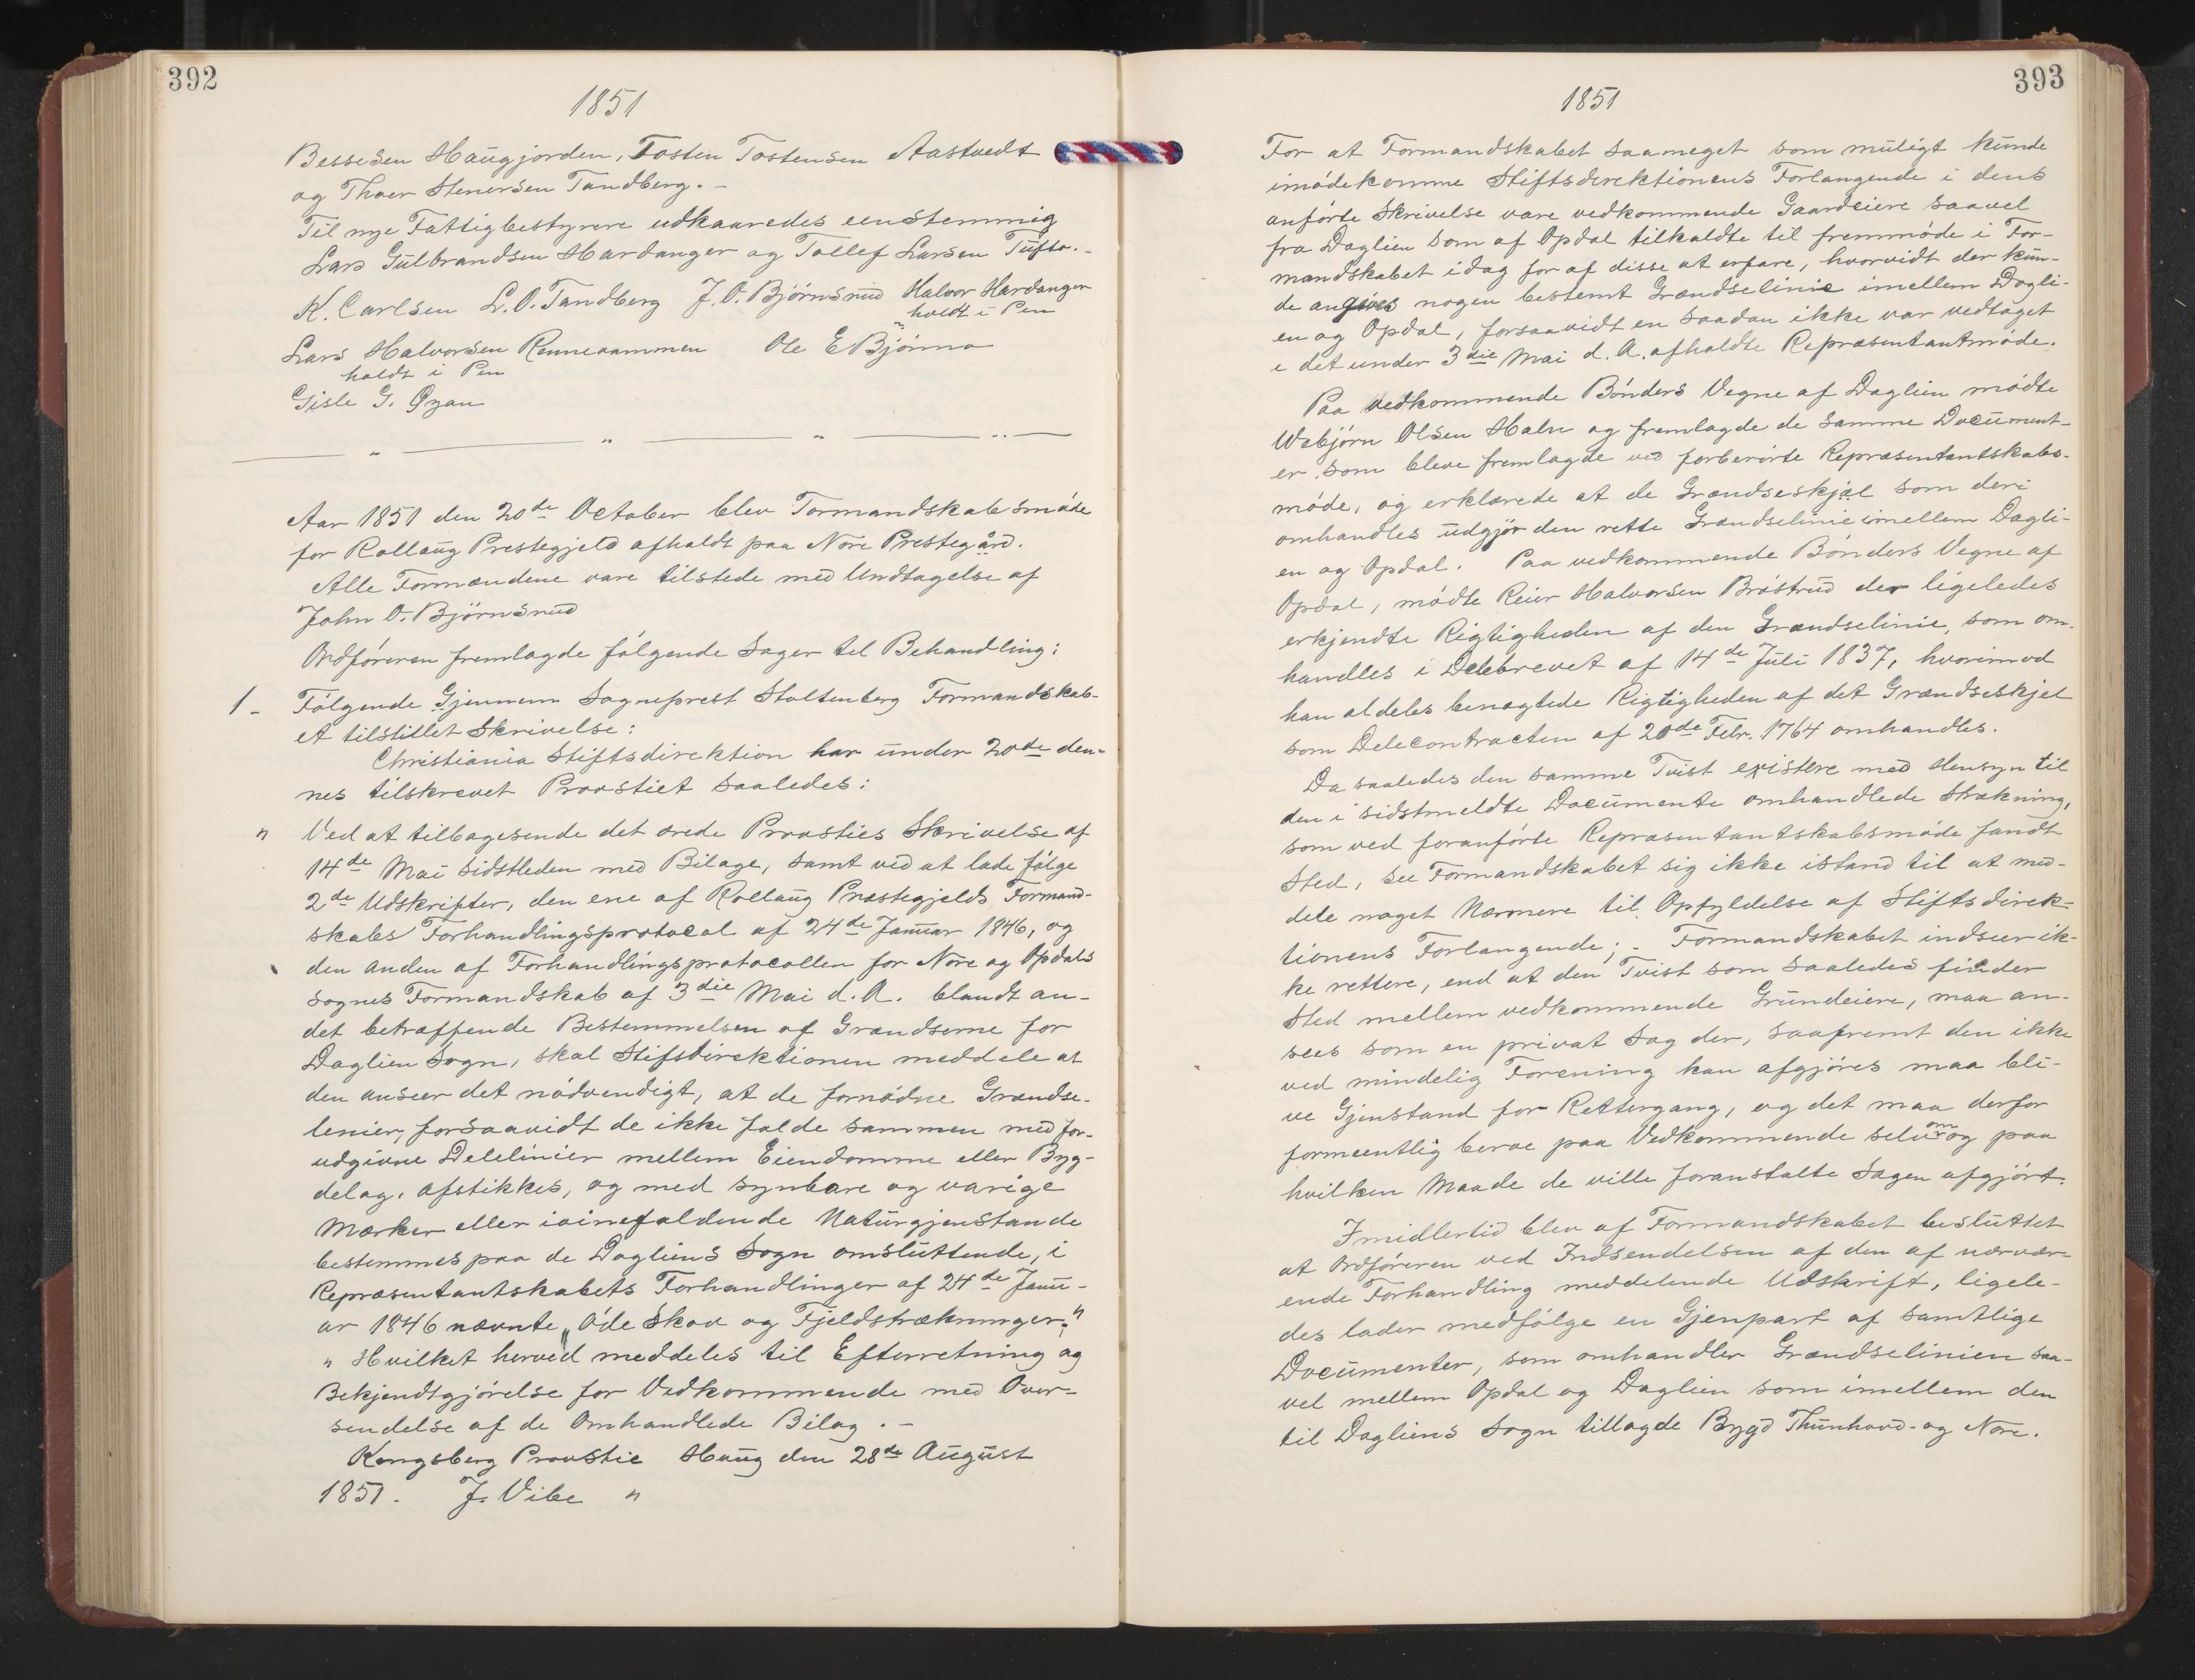 392
1851
Bessesen Haugjorden, Tosten Tostensen Aastvedt
og Thoer Stenersen Tandberg. -
Til nye Fattigbestyrere udkaaredes eenstemmig
Lars Gulbrandsen Hardanger og Tollef Larsen Tufto. -
K. Carlsen L. O. Tandberg J. O. Björnsrud Halvor Hardanger
holdt i Pen
Lars Halvorsen Rennevammen Ole E Bjönno
holdt i Pen
Gisle G. Øyan
Aar 1851 den 20de October blev Formandskabsmöde
for Rollaug Prestegjeld afholdt paa Nore Prestegård.
Alle Formændene vare tilstede med Undtagelse af
John O. Björnsrud
Ordföreren fremlagde fölgende Sager til Behandling:
1 - Fölgende Gjennem Sogneprest Stoltenberg Formandskab-
et tilstillet Skrivelse:
Christiania Stiftsdirektion har under 20de den-
nes tilskrevet Provstiet saaledes:
" Ved at tilbagesende det ærede Provsties Skrivelse af
14de Mai sidstleden med Bilage, samt ved at lade fölge
2de Udskrifter, den ene af Rollaug Præstegjelds Formand-
skabs Forhandlingsprotocol af 24de Januar 1846, og
den anden af Forhandlingsprotocollen for Nore og Opdals
Sognes Formandskab af 3die Mai d. A. blandt an-
det betræffende Bestemmelsen af Grændserne for
Daglien Sogn, skal Stifsdirektionen meddele at
den anseer det nödvendigt, at de fornödne Grændse-
lenier, forsaavidt de ikke falde sammen med for-
udgivne Delelinier mellem Eiendomme eller Byg-
delag, afstikkes, og med synbare og varige
Mærker eller iøinefaldende Naturgjenstande
bestemmes paa de Dagliens Sogn omsluttende, i
Repræsentantskabets Forhandlinger af 24de Janu-
ar 1846 nævnte „Öde Skov og Fjeldstrækninger."
" Hvilket herved meddeles til Efterretning og
Bekjendtgjörelse for Vedkommende med Over-
sendelse af de Omhandlede Bilag. -
Kongsberg Provstie Haug den 28de August
1851. J. Vibe "
393
1851
For at Formandskabet saameget som muligt kunde
imödekomme Stiftsdirektionens Forlangende i dens
anförte Skrivelse vare vedkommende Gaardeiere saavel
fra Daglien som af Opdal tilkaldte til fremmöde i For-
mandskabet idag for af disse at erfare, hvorvidt der kun-
de angives nogen bestemt Grændselinie imellem Dagli-
en og Opdal, forsaavidt en saadan ikke var vedtaget
i det under 3die Mai d. A. afholdte Repræsentantmöde.
Paa Vedkommende Bönders Vegne af Daglien mödte
Webjörn Olsen Haln og fremlagde de samme Document-
er som bleve fremlagde ved forberörte Repræsentantskabs-
möde, og erklærede at de Grændseskjæl som deri
omhandles udgjör den rette Grændselinie imellem Dagli-
en og Opdal. Paa vedkommende Bönders Vegne af
Opdal, mödte Reier Halvorsen Bröstrud der ligeledes
erkjendte Rigtigheden af den Grændselinie, som om-
handles i Delebrevet af 14de Juli 1837, hvorimod
han aldeles benægtede Rigtigheden af det Grændseskjel
som Delecontracten af 20de Febr. 1764 omhandles.
Da saaledes den samme Tvist existere med Hensyn til
den i sidstmeldte Documente omhandlede Strækning,
som ved foranförte Repræsentantskabsmöde fandt
Sted, see Formandskabet sig ikke istand til at med-
dele noget Nærmere til Opfyldelse af Stiftsdirek-
tionens Forlangende; - Formandskabet indseer ik-
ke rettere, end at den Tvist som saaledes finder
Sted mellem vedkommende Grundeiere, maa an-
sees som en privat Sag der, saafremt den ikke
ved mindelig Forening kan afgjöres maa bli-
ve Gjenstand for Rettergang, og det maa derfor
formeentlig beroe paa Vedkommende selv om og paa
hvilken Maade de ville foranstalte Sagen afgjört.
Imidlertid blev af Formandskabet besluttet
at Ordföreren ved Indsendelsen af den af nærvær-
ende Forhandling meddelende Udskrift, ligele-
des lader medfölge en Gjenpart af samtlige
Documenter, som omhandler Grændselinien saa-
vel mellem Opdal og Daglien som imellem den
til Dagliens Sogn tillagde Bygd Thunhovd- og Nore.